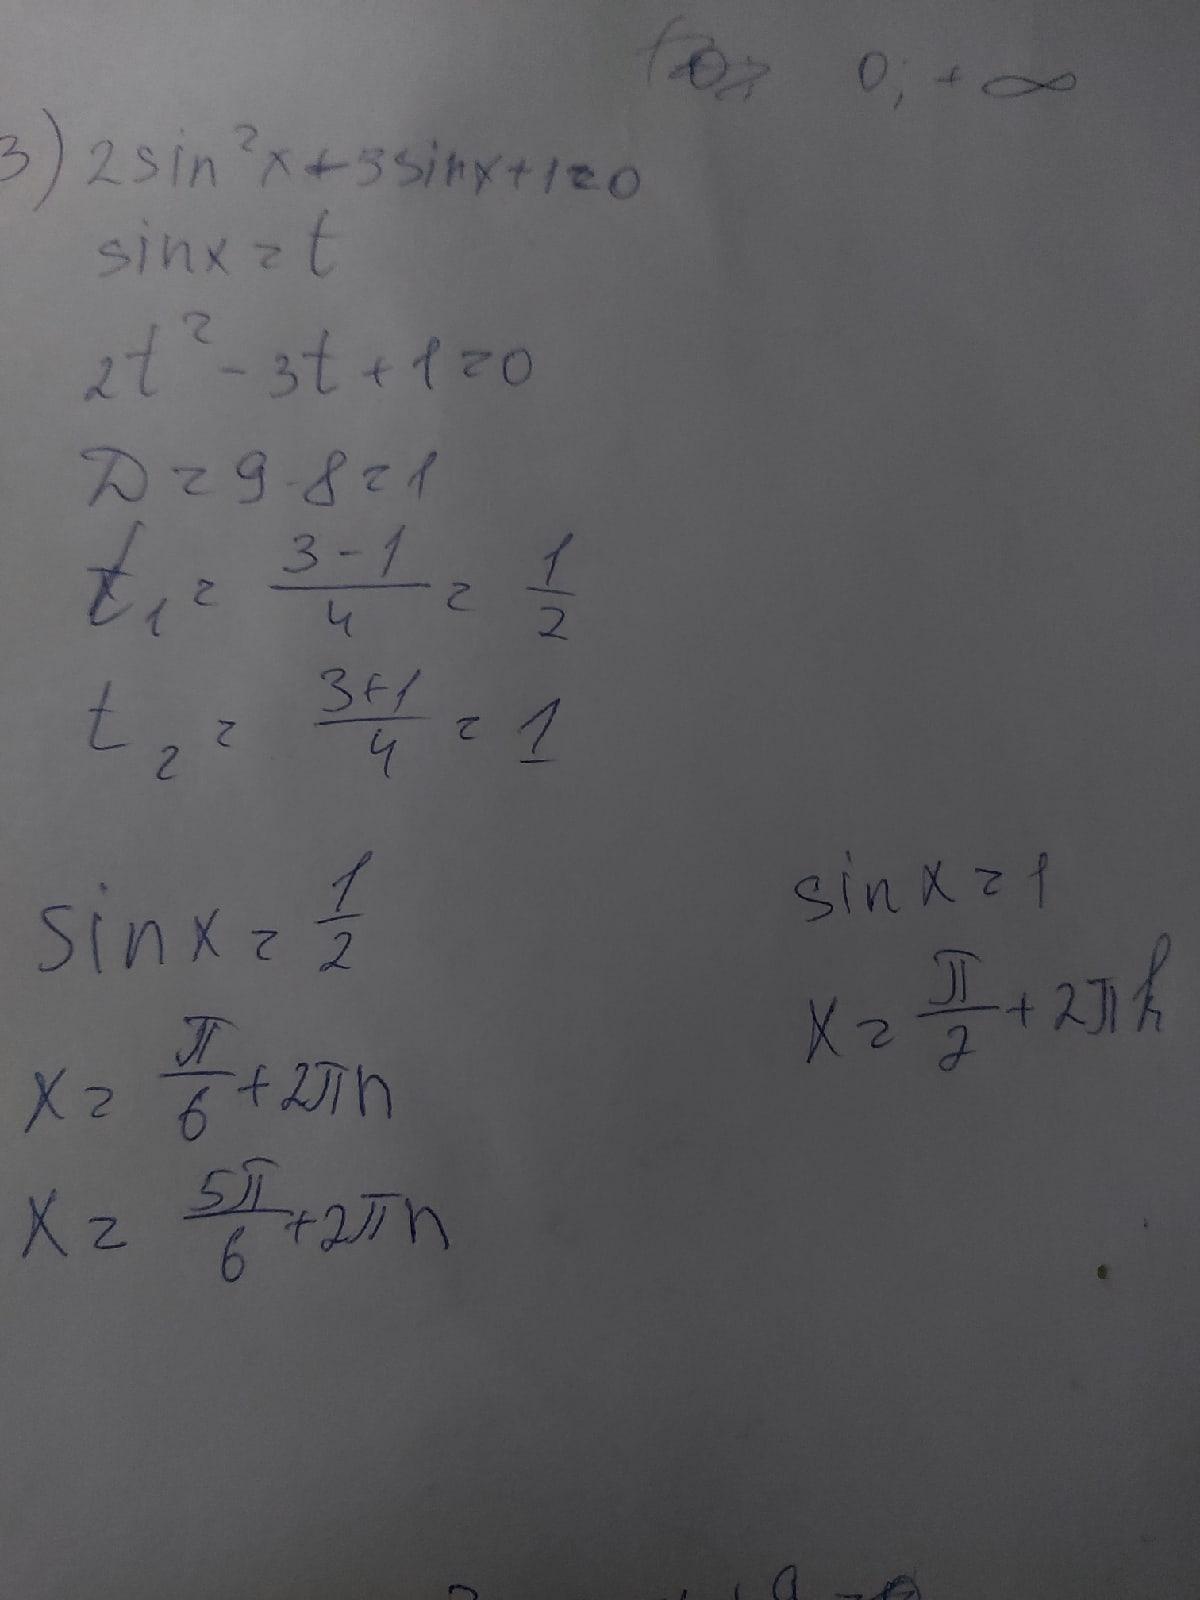 0; + ∞
3) 2sin²x+3sinx+1=0
sinx=t
2t²-3t+1=0
D=9-8=1
t₁ = (3-1)/4 = 1/2
t₂ = (3+1)/4 = 1
sinx = 1/2
x = π/6 + 2πn
x = 5π/6 + 2πn
sinx=1
x = π/2 + 2πk